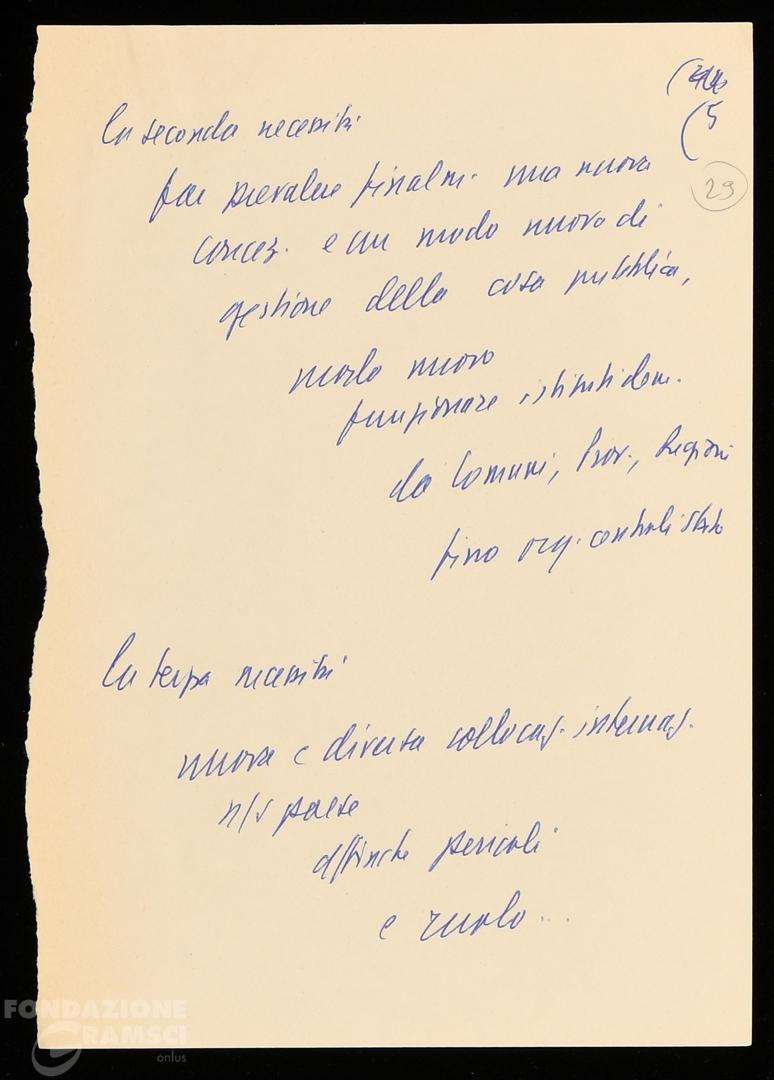 (5
La seconda necessità
29
far prevalere finalm. una nuova
concez. e un modo nuovo di
gestione della cosa pubblica,
modo nuovo
funzionare istituti dem.
da Comuni, Prov., Regioni
fino org. centrali Stato
La terza necessità
nuova e diversa collocaz. internaz.
n/s paese
affinché pericoli
e ruolo...
FONDAZIONE
GRAMSCI
onlus